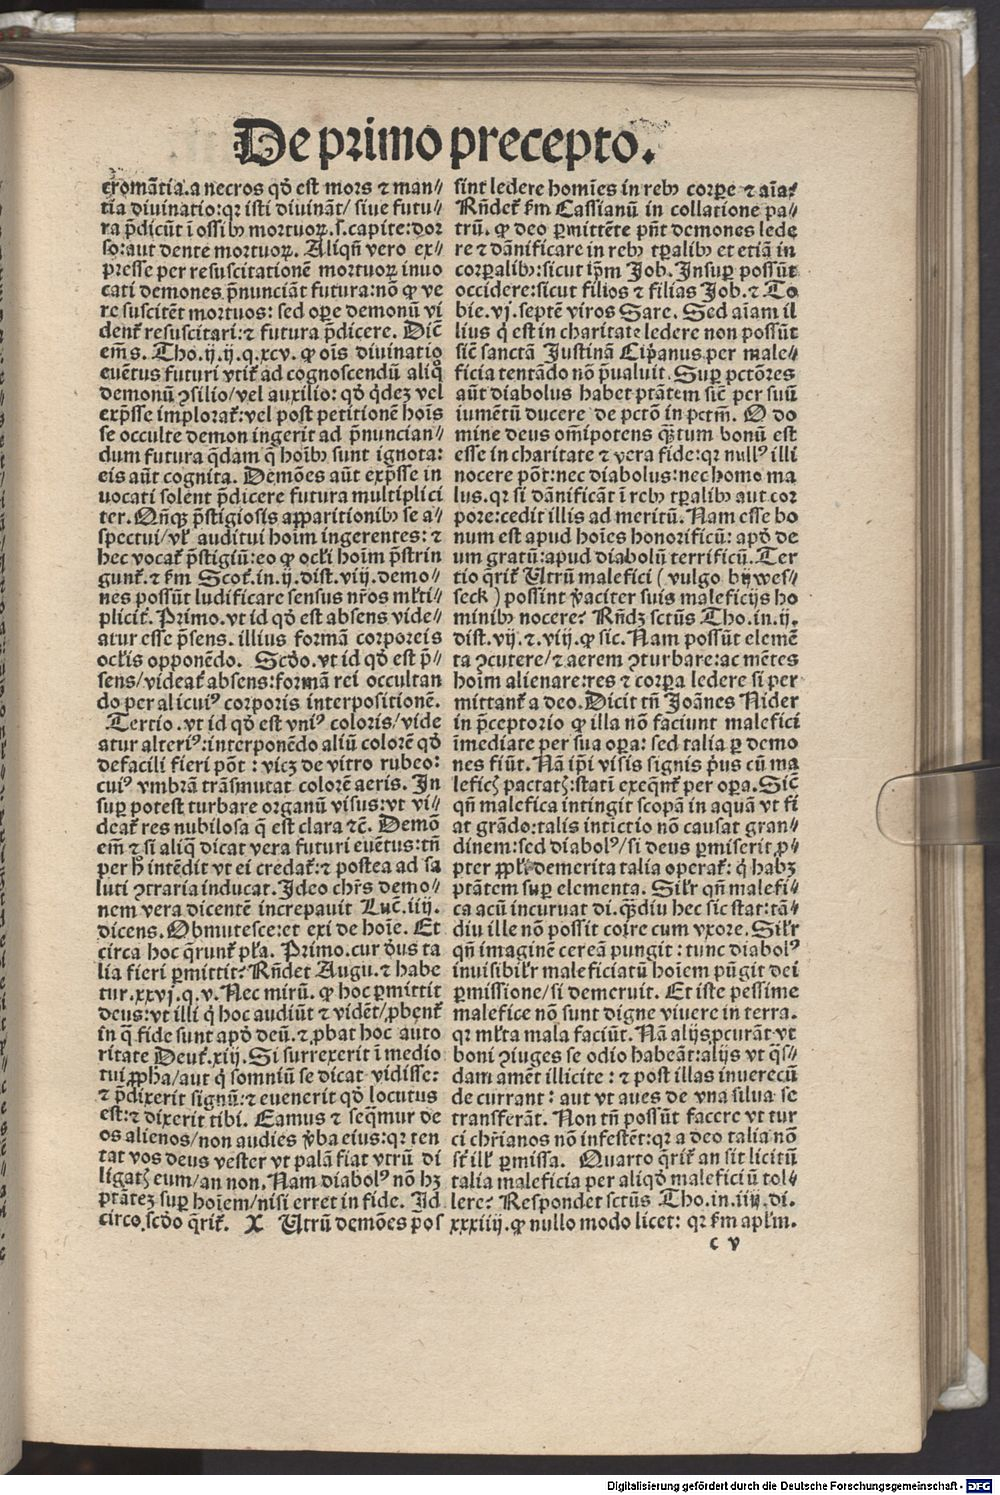 De primo precepto.
cromātia.a necros qđ est mors ⁊ man⸗
tia divinatio:qꝛ isti divināt/ sive futu⸗
ra p̄dicūt ī ossibꝫ mortuoꝝ.ſ.capite:dor
so:aut dente mortuoꝝ. Aliqn̄ vero ex⸗
presse per resuscitationē mortuoꝝ invo
cati demones p̄nunciāt futura:nō ꝙ ve
re suscitēt mortuos: sed oꝑe demonū vi
denť resuscitari:⁊ futura p̄dicere. Dicē
em̄ s. Tho.ij.ij.q.xcv. ꝙ oīs divinatio
evētus futuri vtiť ad cognoscendū aliq̊
demonū ꝯsilio/vel auxilio: qđ q̇dez vel
exp̄sse implorať:vel post petitionē hoīs
se occulte demon ingerit ad p̄nuncian⸗
dum futura q̄dam q̄ hoībꝫ sunt ignota:
eis aūt cognita. Demōes aūt exp̄sse in
uocati solent p̄dicere futura multiplici
ter. Qn̄qꝫ p̄stigiosis apparitionibꝫ se a⸗
spectui/vł auditui hoīm ingerentes: ⁊
hec vocať p̄stigiū:eo ꝙ ocłi hoīm p̄strin
gunť.⁊ ẜm Scoť.in.ij.dist.viij.demo⸗
nes possūt ludificare sensus nr̄os młti⸗
pliciť. Primo.vt id qđ est absens vide⸗
atur esse p̄sens. illius formā corporeis
ocłis opponēdo. Scđo.vt id qđ est p̄⸗
sens/videať absens:formā rei occultan
do per alicuiꝰ corporis interpositionē.
Tertio.vt id qđ est vniꝰ coloris/vide
atur alteriꝰ:interponēdo aliū colorē qđ
defacili fieri pōt: vicꝫ de vitro rubeo:
cuiꝰ vmbrā trāsmutat colorē aeris. In
suꝑ potest turbare organū visus:vt vi⸗
deať res nubilosa q̄ est clara ⁊c̄. Demō
em̄ ⁊ si aliq̄ dicat vera futuri evētus:tn̄
per h̄ intēdit vt ei credať:⁊ postea ad sa
luti ꝯtraria inducat. Ideo chr̄s demo⸗
nem vera dicentē increpavit Luc̄.iiij.
dicens.Obmutesce:et exi de hoīe. Et
circa hoc q̄runť pła. Primo.cur dūs ta
lia fieri ꝑmittit? Rn̄det Augu.⁊ habe
tur.xxvj.q.v.Nec mirū. ꝙ hoc ꝑmittit
deus:vt illi q̇ hoc audiūt ⁊ vidēt/ꝓbenť
in q̄ fide sunt apđ deū.⁊ ꝓbat hoc auto
ritate Deuť.xiij. Si surrexerit ī medio
tui ꝓpha/aut q̇ somniū se dicat vidisse:
⁊ p̄dixerit signū:⁊ evenerit qđ locutus
est:⁊ dixerit tibi. Eamus ⁊ seq̄mur de
os alienos/non audies v̄ba eius:qꝛ ten
tat vos deus vester vt palā fiat vtrū di
ligatꝭ eum/an non. Nam diabolꝰ nō hꝫ
ptātez suꝑ hoīem/nisi erret in fide. Id
circo.scđo q̄riť. X Vtrū demōes pos
sint ledere homīes in rebꝫ corꝑe ⁊ aīa?
Rn̄deť ẜm Cassianū in collatione pa⸗
trū. ꝙ deo ꝑmittēte pn̄t demones lede
re ⁊ dānificare in rebꝫ tꝑalibꝫ et etiā in
corꝑalibꝫ:sicut ip̄m Job. Insuꝑ possūt
occidere:sicut filios ⁊ filias Job.⁊ To
bie.vj.septē viros Sare. Sed aīam il
lius q̇ est in charitate ledere non possūt
sic̄ sanctā Justinā Cip̄anus per male⸗
ficia tentādo nō p̄ualuit. Suꝑ pctōres
aūt diabolus habet ptātem sic̄ per suū
iumētū ducere de pctō in pctm̄. O do
mine deus om̄ipotens q̄ꝫtum bonū est
esse in charitate ⁊ vera fide:qꝛ nullꝰ illi
nocere pōt:nec diabolus:nec homo ma
lus.qꝛ si dānificāt ī rebꝫ tꝑalibꝫ aut cor
pore:cedit illis ad meritū. Nam esse bo
num est apud hoīes honorificū: apđ de
um gratū:apud diabolū terrificū. Ter
tio q̄riť Vtrū malefici (vulgo bijwes⸗
seck) possint v̄aciter suis maleficijs ho
minibꝫ nocere? Rn̄dꝫ sctūs Tho.in.ij.
dist.vij.⁊.viij.ꝙ sic. Nam possūt elemē
ta ꝯcutere/⁊ aerem ꝯturbare:ac mētes
hoīm alienare:res ⁊ corꝑa ledere si per
mittanť a deo. Dicit tn̄ Joānes Nider
in p̄ceptorio ꝙ illa nō faciunt malefici
īmediate per sua oꝑa: sed talia ꝑ demo
nes fiūt. Nā ip̄i visis signis ṗus cū ma
leficꝭ pactatꝭ:statī exeq̄nť per oꝑa. Sic̄
qn̄ malefica intingit scopā in aquā vt fi
at grādo:talis intictio nō causat gran⸗
dinem:sed diabolꝰ/si deus ꝑmiserit ꝓ⸗
pter ꝓpłi demerita talia operať: q̇ habꝫ
ptātem suꝑ elementa. Silr̄ qn̄ malefi⸗
ca acū incuruat di.q̄ꝫdiu hec sic stat:tā⸗
diu ille nō possit coire cum vxore. Silr̄
qn̄ imaginē cereā pungit: tunc diabolꝰ
invisibilr̄ maleficiatū hoīem pūgit dei
ꝑmissione/si demeruit. Et iste pessime
malefice nō sunt digne vivere in terra.
qꝛ młta mala faciūt. Nā alijs ꝓcurāt vt
boni ꝯiuges se odio habeāt:alijs vt q̇s⸗
dam amēt illicite: ⁊ post illas inuerecū
de currant: aut vt aues de vna silua se
transferāt. Non tn̄ possūt facere vt tur
ci chr̄ianos nō infestēt:qꝛ a deo talia nō
sť illť ꝑmissa. Quarto q̄riť an sit licitū
talia maleficia per aliqđ maleficiū tol⸗
lere? Respondet sctūs Tho.in.iiij.di.
xxxiiij.ꝙ nullo modo licet: qꝛ ẜm apłm.
c v
Digitalisierung gefördert durch die Deutsche Forschungsgemeinschaft - DFG